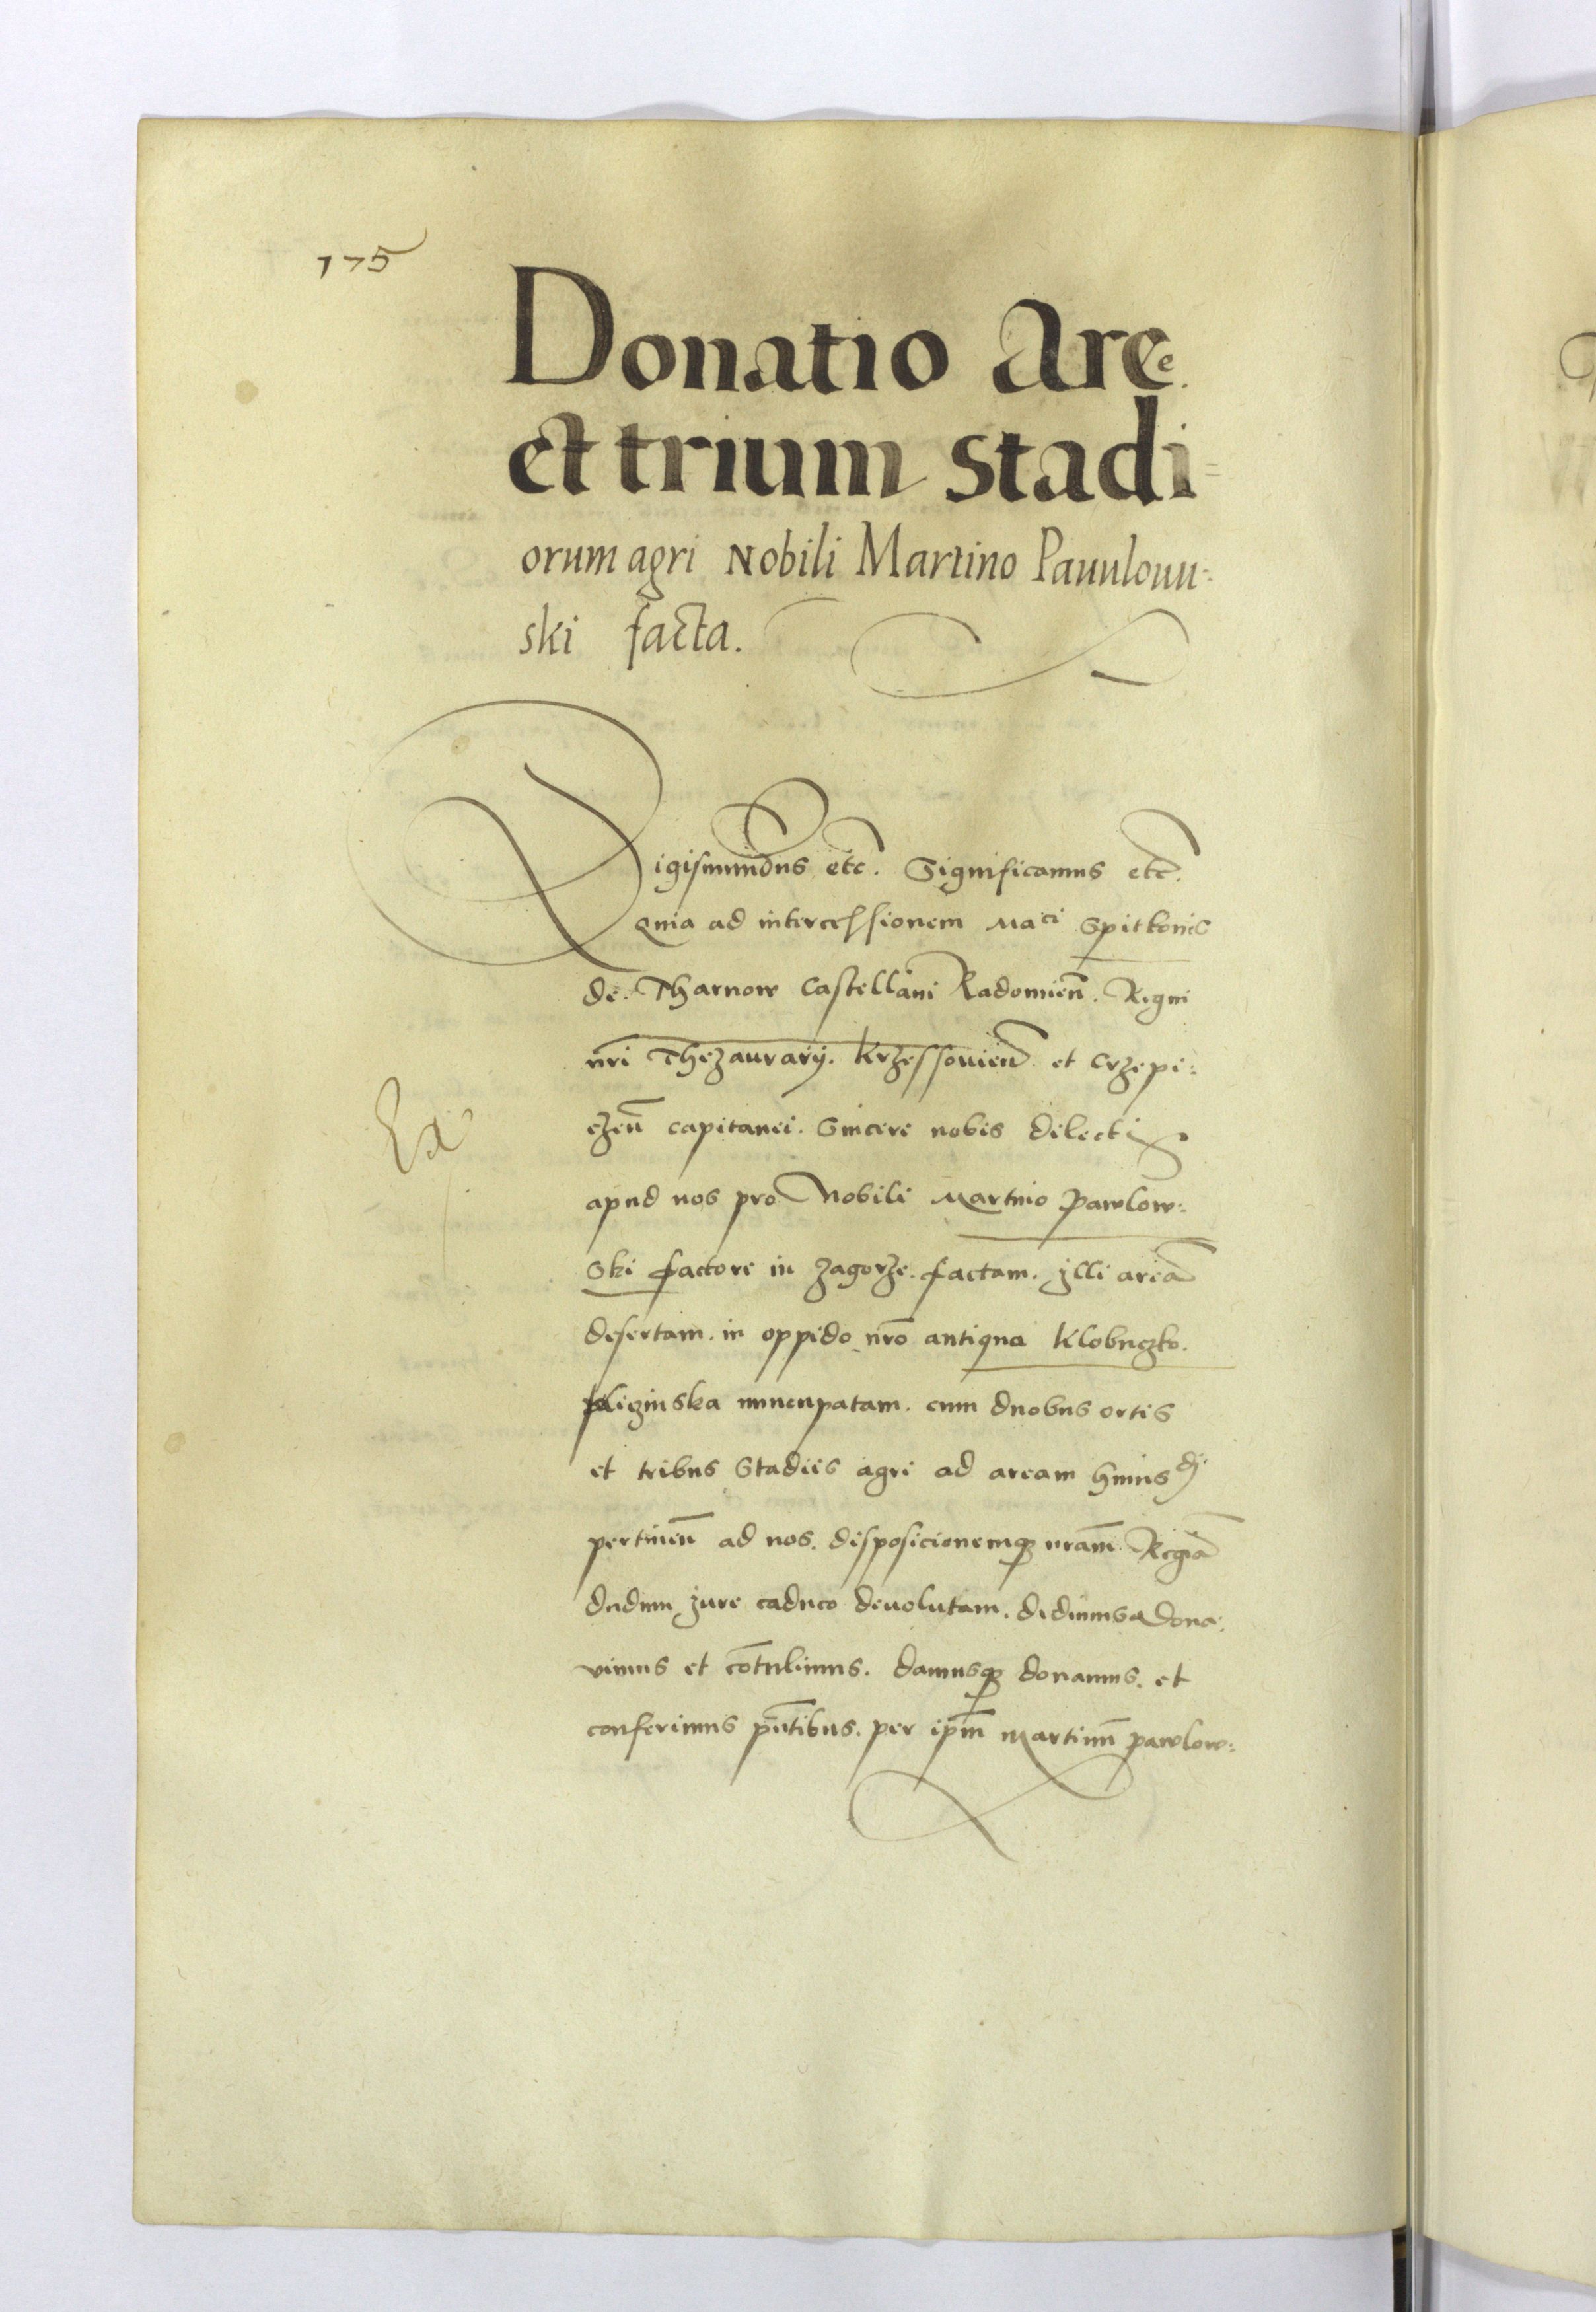 175
Donatio Aree
et trium stadi=
orum agri Nobili Martino Pauulouu:
ski facta.
Sigismundus etc. Significamus etc.
Quia ad intercessionem Maci Spitkonis
de Tharnow Castellani Radomien̄. Regni
nr̄i Thezaurarij. Krzessouien̄ et Crzepi:
czen̄ capitanei. Sincere nobis dilecti
apud nos pro Nobili Martino Pawlow:
ski factore in Zagorze. factam. jlli areā
desertam. in oppido nr̄o antiqua Klobuczko.
nuncupatam. cum duobus ortis
et tribus Stadiis agri ad aream huiusdj
pertinen̄ ad nos. disposicionemq̨ nr̄am Regiā
dudum jure caduco deuolutam. dedimus dona:
vimus et cōtulimus. damusq̨ donamus. et
conferimus pn̄tibus. per ip̄m Martinū pawlow: